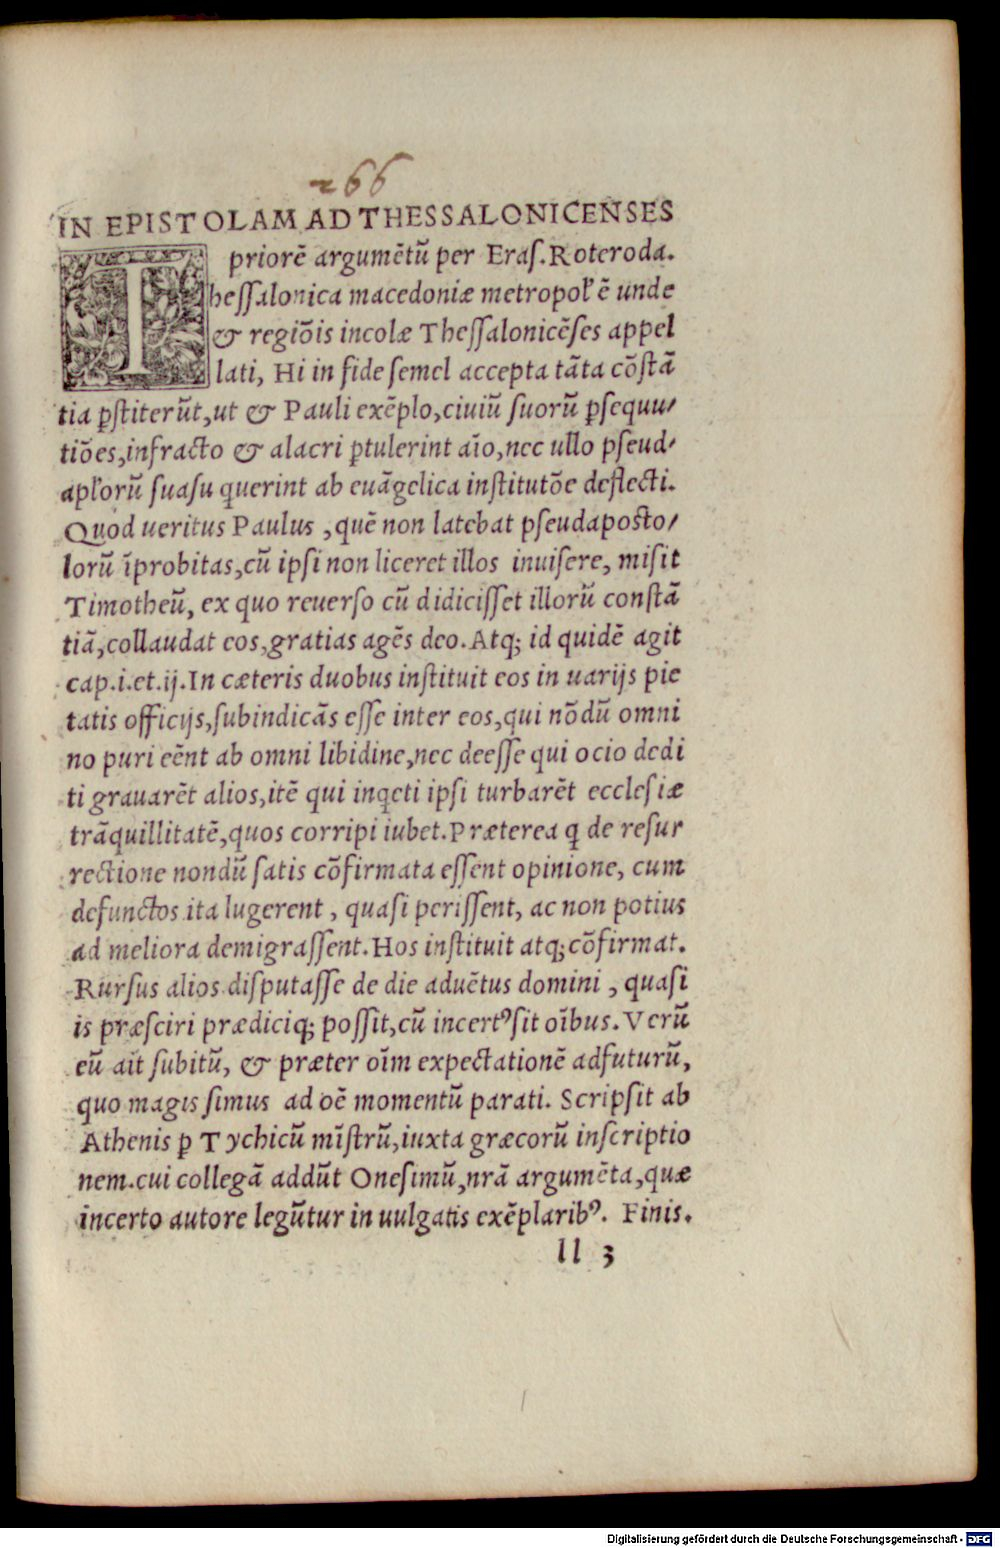 266
IN EPISTOLAM AD THESSALONICENSES
priorē argumētū per Eras. Roteroda.
Thessalonica macedoniæ metropoł ē unde
& regiōis incolæ Thessalonicēses appel
lati, Hi in fide semel accepta tāta cōstā
tia ꝑstiterūt, ut & Pauli exēplo, ciuiū suorū ꝑsequu/
tiōes, infracto & alacri ꝑtulerint aīo, nec ullo pseud/
apłorū suasu querint ab euāgelica institutōe deflecti.
Quod ueritus Paulus, quē non latebat pseudaposto/
lorū īprobitas, cū ipsi non liceret illos inuisere, misit
Timotheū, ex quo reuerso cū didicisset illorū constā
tiā, collaudat eos, gratias agēs deo. Atq; id quidē agit
cap.i.et.ij. In cæteris duobus instituit eos in uarijs pie
tatis officijs, subindicās esse inter eos, qui nōdū omni
no puri eēnt ab omni libidine, nec deesse qui ocio dedi
ti grauarēt alios, itē qui inq̇eti ipsi turbarēt ecclesiæ
trāquillitatē, quos corripi iubet. Præterea ꝗ de resur
rectione nondū satis cōfirmata essent opinione, cum
defunctos ita lugerent, quasi perissent, ac non potius
ad meliora demigrassent. Hos instituit atq; cōfirmat.
Rursus alios disputasse de die aduētus domini, quasi
is præsciri prædiciq; possit, cū incertꝰ sit oībus. Verū
eū ait subitū, & præter oīm expectationē adfuturū,
quo magis simus ad oē momentū parati. Scripsit ab
Athenis ꝑ Tychicū mīstrū, iuxta græcorū inscriptio
nem. cui collegā addūt Onesimū, nrā argumēta, quæ
incerto autore legūtur in uulgatis exēplaribꝰ. Finis.
ll 3
Digitalisierung gefördert durch die Deutsche Forschungsgemeinschaft - DFG